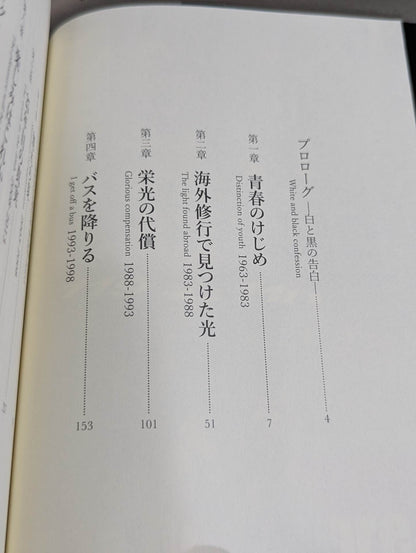 プロローグ ―白と黒の告白― 4
White and black confession
第一章 青春のけじめ 7
Distinction of youth 1963-1983
第二章 海外修行で見つけた光 51
The light found abroad 1983-1988
第三章 栄光の代償 101
Glorious compensation 1988-1993
第四章 バスを降りる 153
I get off a bus 1993-1998